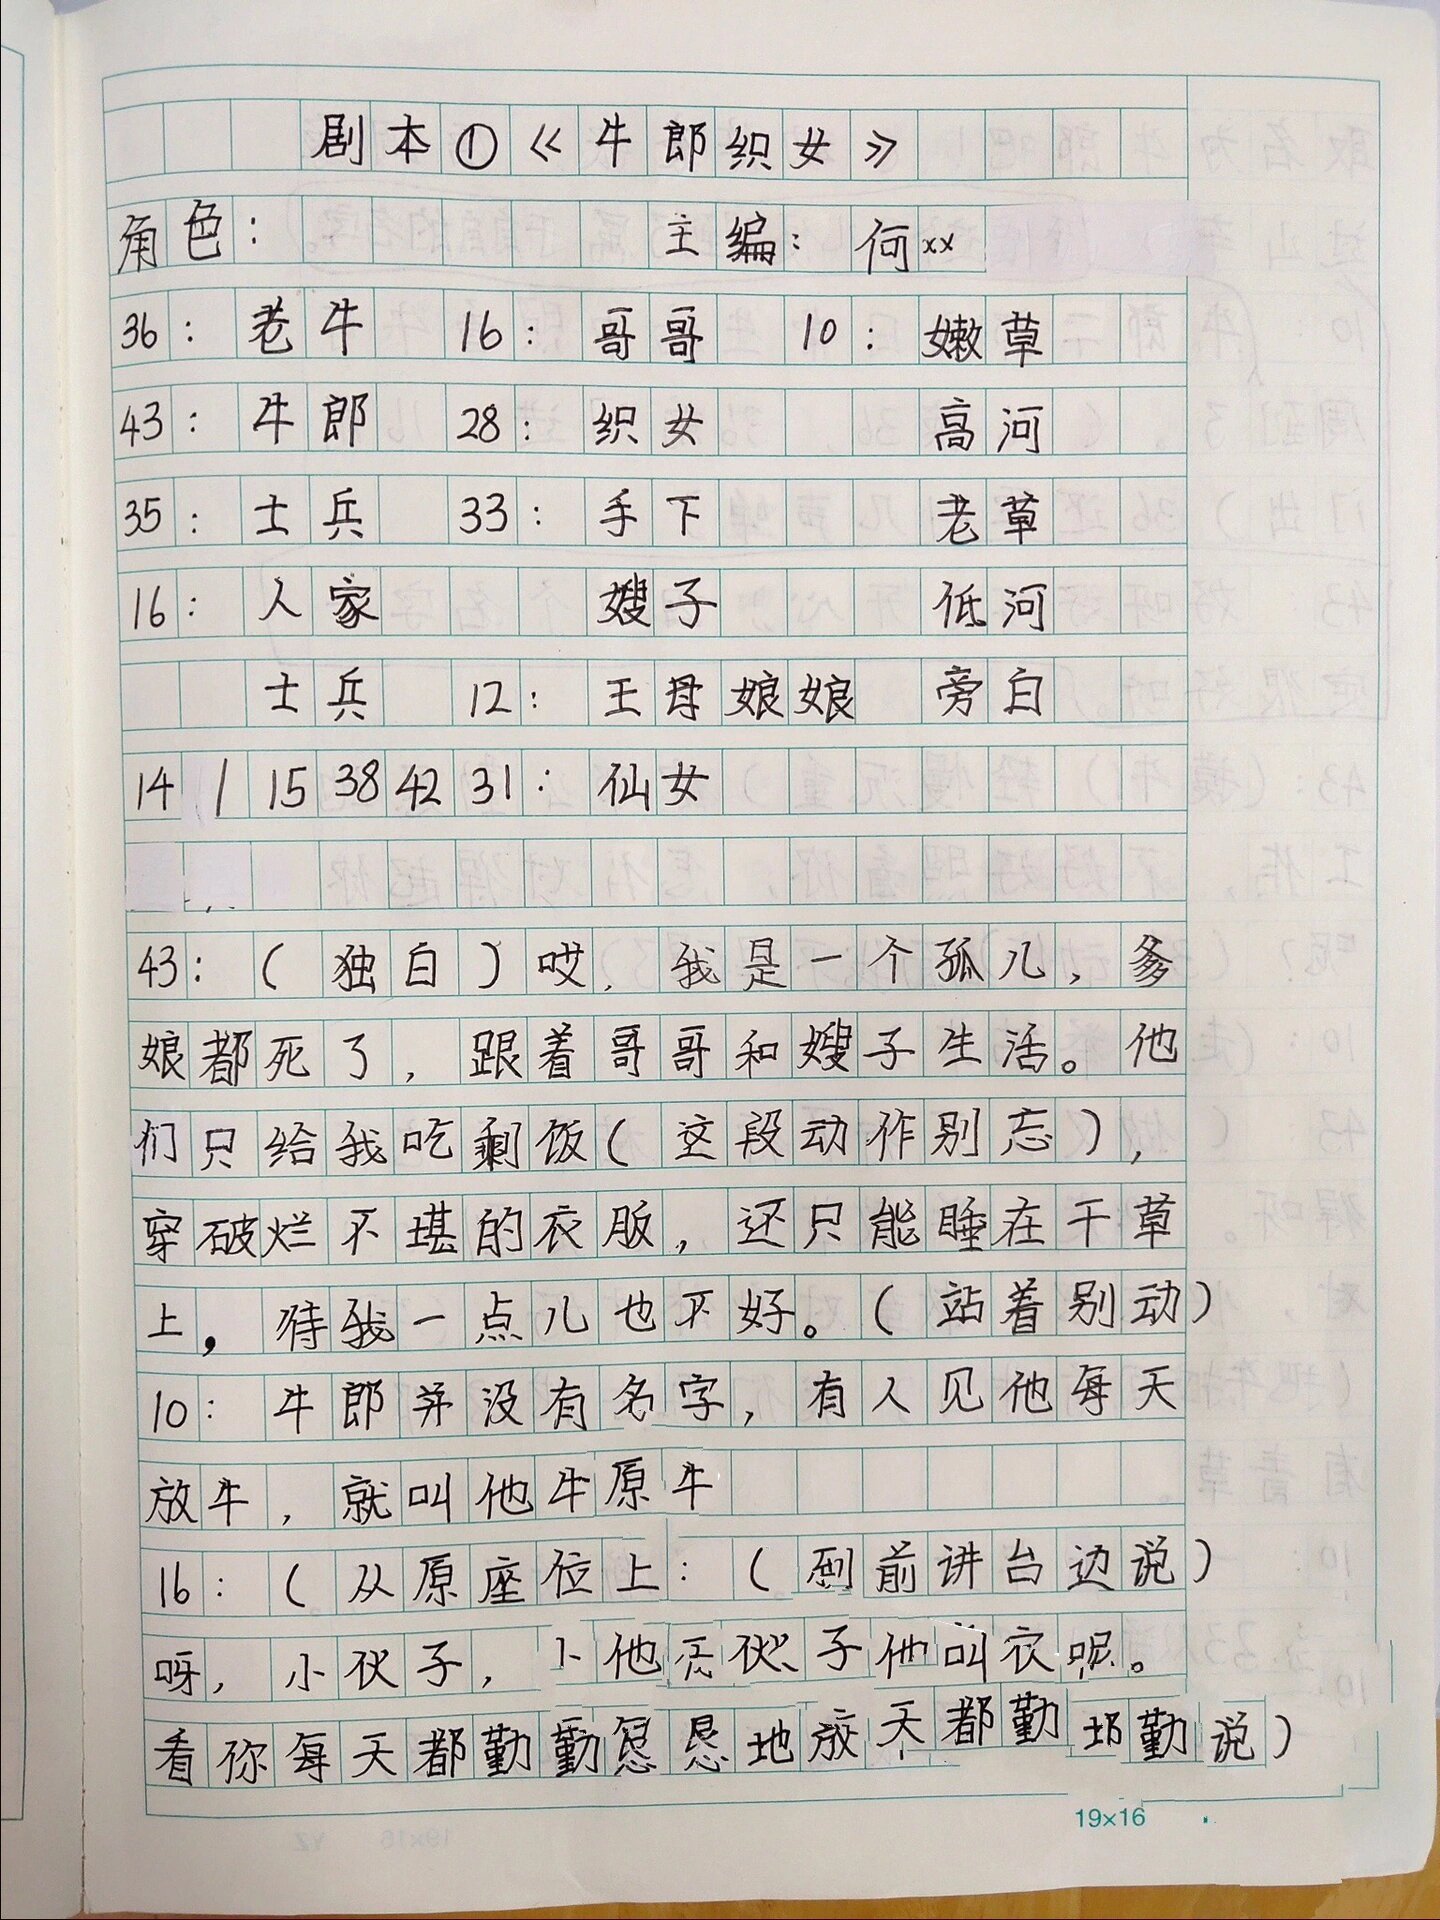 剧本①《牛郎织女》
角色： 主编：何xx
36：老牛 16：哥哥 10：嫩草
43：牛郎 28：织女 高河
35：士兵 33：手下 老草
16：人家 嫂子 低河
士兵 12：王母娘娘 旁白
14 1 15 38 42 31：仙女
43：（独白）哎，我是一个孤儿，爹
娘都死了，跟着哥哥和嫂子生活。他
们只给我吃剩饭（这段动作别忘），
穿破烂不堪的衣服，还只能睡在干草
上，待我一点儿也不好。（站着别动）
10：牛郎并没有名字，有人见他每天
放牛，就叫他牛原牛
16：（从原座位上：（到前讲台边说）
呀，小伙子，他伙子他叫衣呢。
看你每天都勤勤恳恳地放天都勤勤说）
19×16